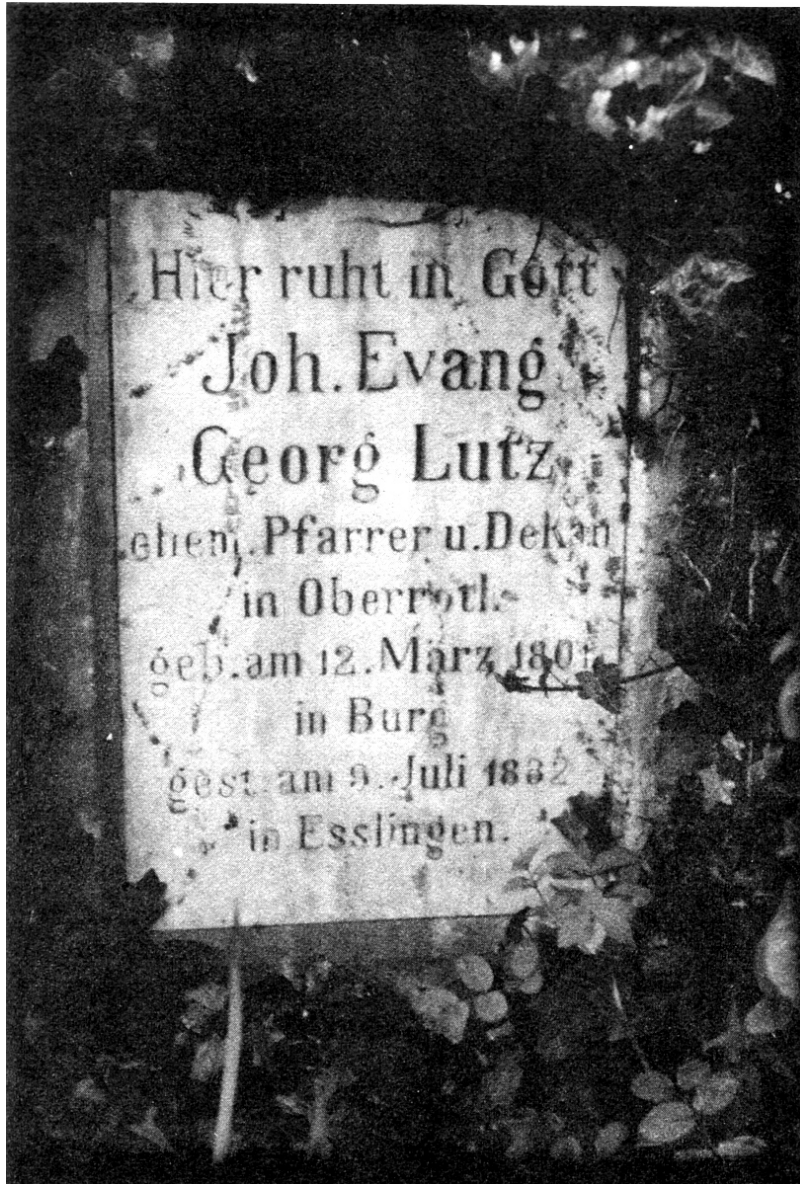 Hier ruht in Gott
Joh. Evang
Georg Lutz
ehem. Pfarrer u. Dekan
in Oberroth
geb. am 12. März 1801
in Burg
gest. am 9. Juli 1882
in Esslingen.